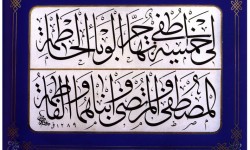 لى خمسة اطفى بها حر الوبا الحاطمة
المصطفى والمرتضى وابناهما والفاطمة